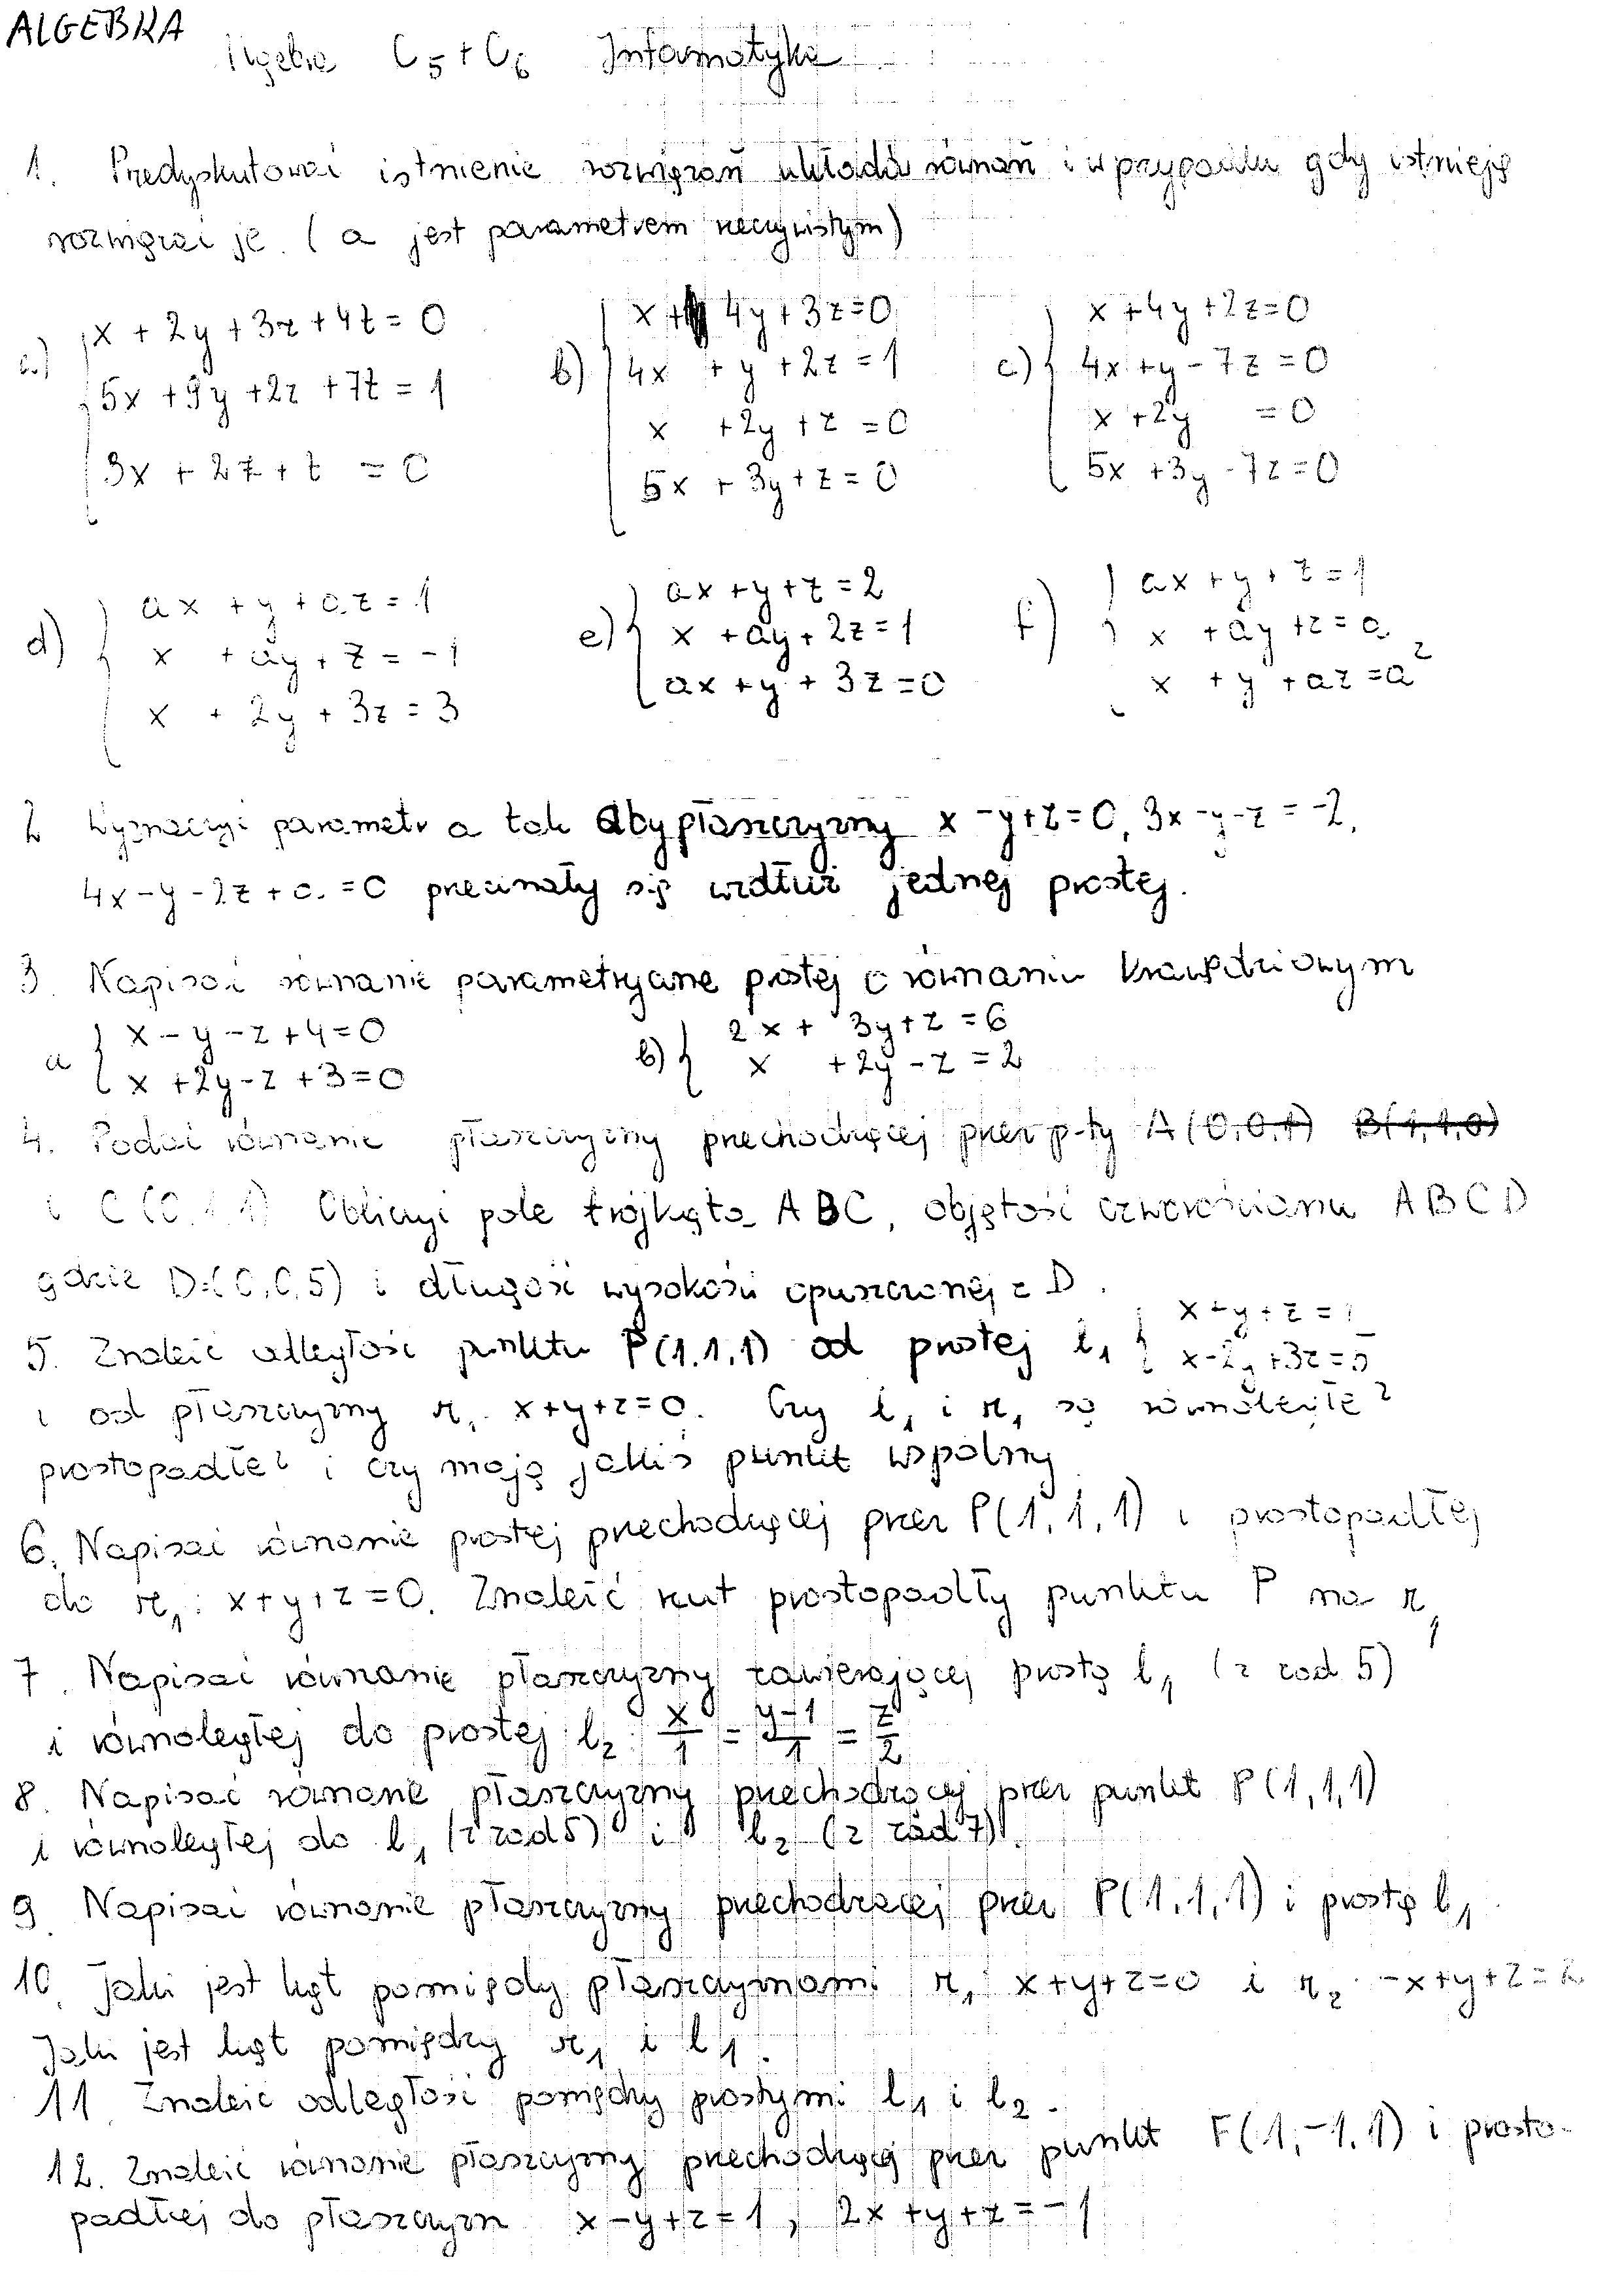 ALGEBRA
Algebra C5 + C6 Informatyka
1. Przedyskutować istnienie rozwiązań układu równań i w przypadku gdy istnieją
rozwiązać je. (a jest parametrem rzeczywistym)
a) { x + 2y + 3z + 4t = 0
5x + 9y + 2z + 7t = 1
3x + 2z + t = 0
b) { x + 4y + 3z = 0
4x + y + 2z = 1
x + 2y + z = 0
5x + 3y + z = 0
c) { x + 4y + 2z = 0
4x + y - 7z = 0
x + 2y = 0
5x + 3y - 7z = 0
d) { ax + y + az = 1
x + ay + z = -1
x + 2y + 3z = 3
e) { ax + y + z = 2
x + ay + 2z = 1
ax + y + 3z = 0
f) { ax + y + z = 1
x + ay + z = a
x + y + az = a²
2 Wyznaczyć parametr a tak aby płaszczyzny x - y + z = 0, 3x - y - z = -2,
4x - y - 2z + a = 0 przecinały się wzdłuż jednej prostej.
3. Napisać równanie parametryczne prostej o równaniu krawędziowym
a { x - y - z + 4 = 0
x + 2y - z + 3 = 0
b) { 2x + 3y + z = 6
x + 2y - z = 2
4. Podać równanie płaszczyzny przechodzącej przez p-ty A (0,0,1) B(1,1,0)
i C (0,1,1) Obliczyć pole trójkąta ABC, objętość czworościanu ABCD
gdzie D=(0,0,5) i długość wysokości opuszczonej z D.
5. Znaleźć odległość punktu P(1,1,1) od prostej l1 { x + y + z = 1
x - 2y + 3z = 5
i od płaszczyzny π1 x+y+z=0. Czy l1 i π1 są równoległe?
prostopadłe? i czy mają jakiś punkt wspólny
6. Napisać równanie prostej przechodzącej przez P(1,1,1) i prostopadłej
do π1: x+y+z=0. Znaleźć rzut prostopadły punktu P na π1
7. Napisać równanie płaszczyzny zawierającej prostą l1 (z zad 5)
i równoległej do prostej l2: x/1 = y-1/1 = z/2
8. Napisać równanie płaszczyzny przechodzącej przez punkt P(1,1,1)
i równoległej do l1 (z zad 5) i l2 (z zad 7).
9 Napisać równanie płaszczyzny przechodzącej przez P(1,1,1) i prostą l1.
10. Jaki jest kąt pomiędzy płaszczyznami π1: x+y+z=0 i π2: -x+y+z=
Jaki jest kąt pomiędzy π1 i l1.
11. Znaleźć odległość pomiędzy prostymi l1 i l2.
12. Znaleźć równanie płaszczyzny przechodzącej przez punkt F(1,-1,1) i prosto-
padłej do płaszczyzn x-y+z=1, 2x+y+z=-1